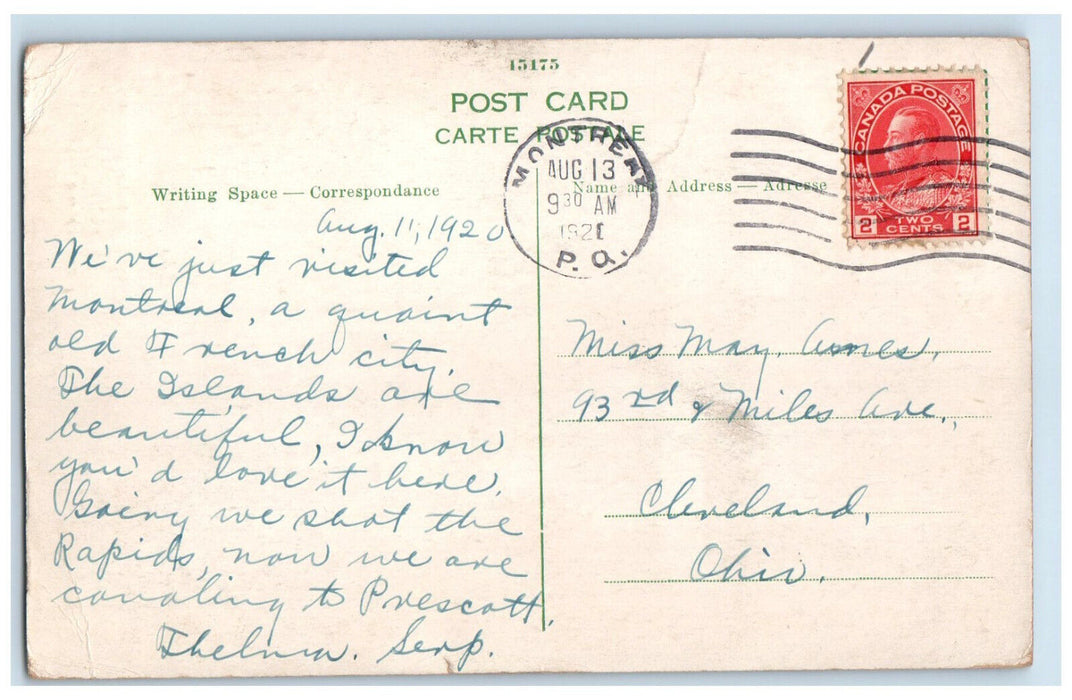 15175
POST CARD
CARTE POSTALE
Writing Space — Correspondance
Name and Address — Adresse
MONTREAL
AUG 13
9 30 AM
P.Q.
CANADA POSTAGE
2 TWO CENTS 2
Aug. 11, 1920
We've just visited
Montreal, a quaint
old French city.
The Islands are
beautiful, I know
you'd love it here.
Going we shot the
Rapids, now we are
canaling to Prescott.
Thelma.
Miss May. Ames,
93rd & Miles Ave.,
Cleveland,
Ohio.